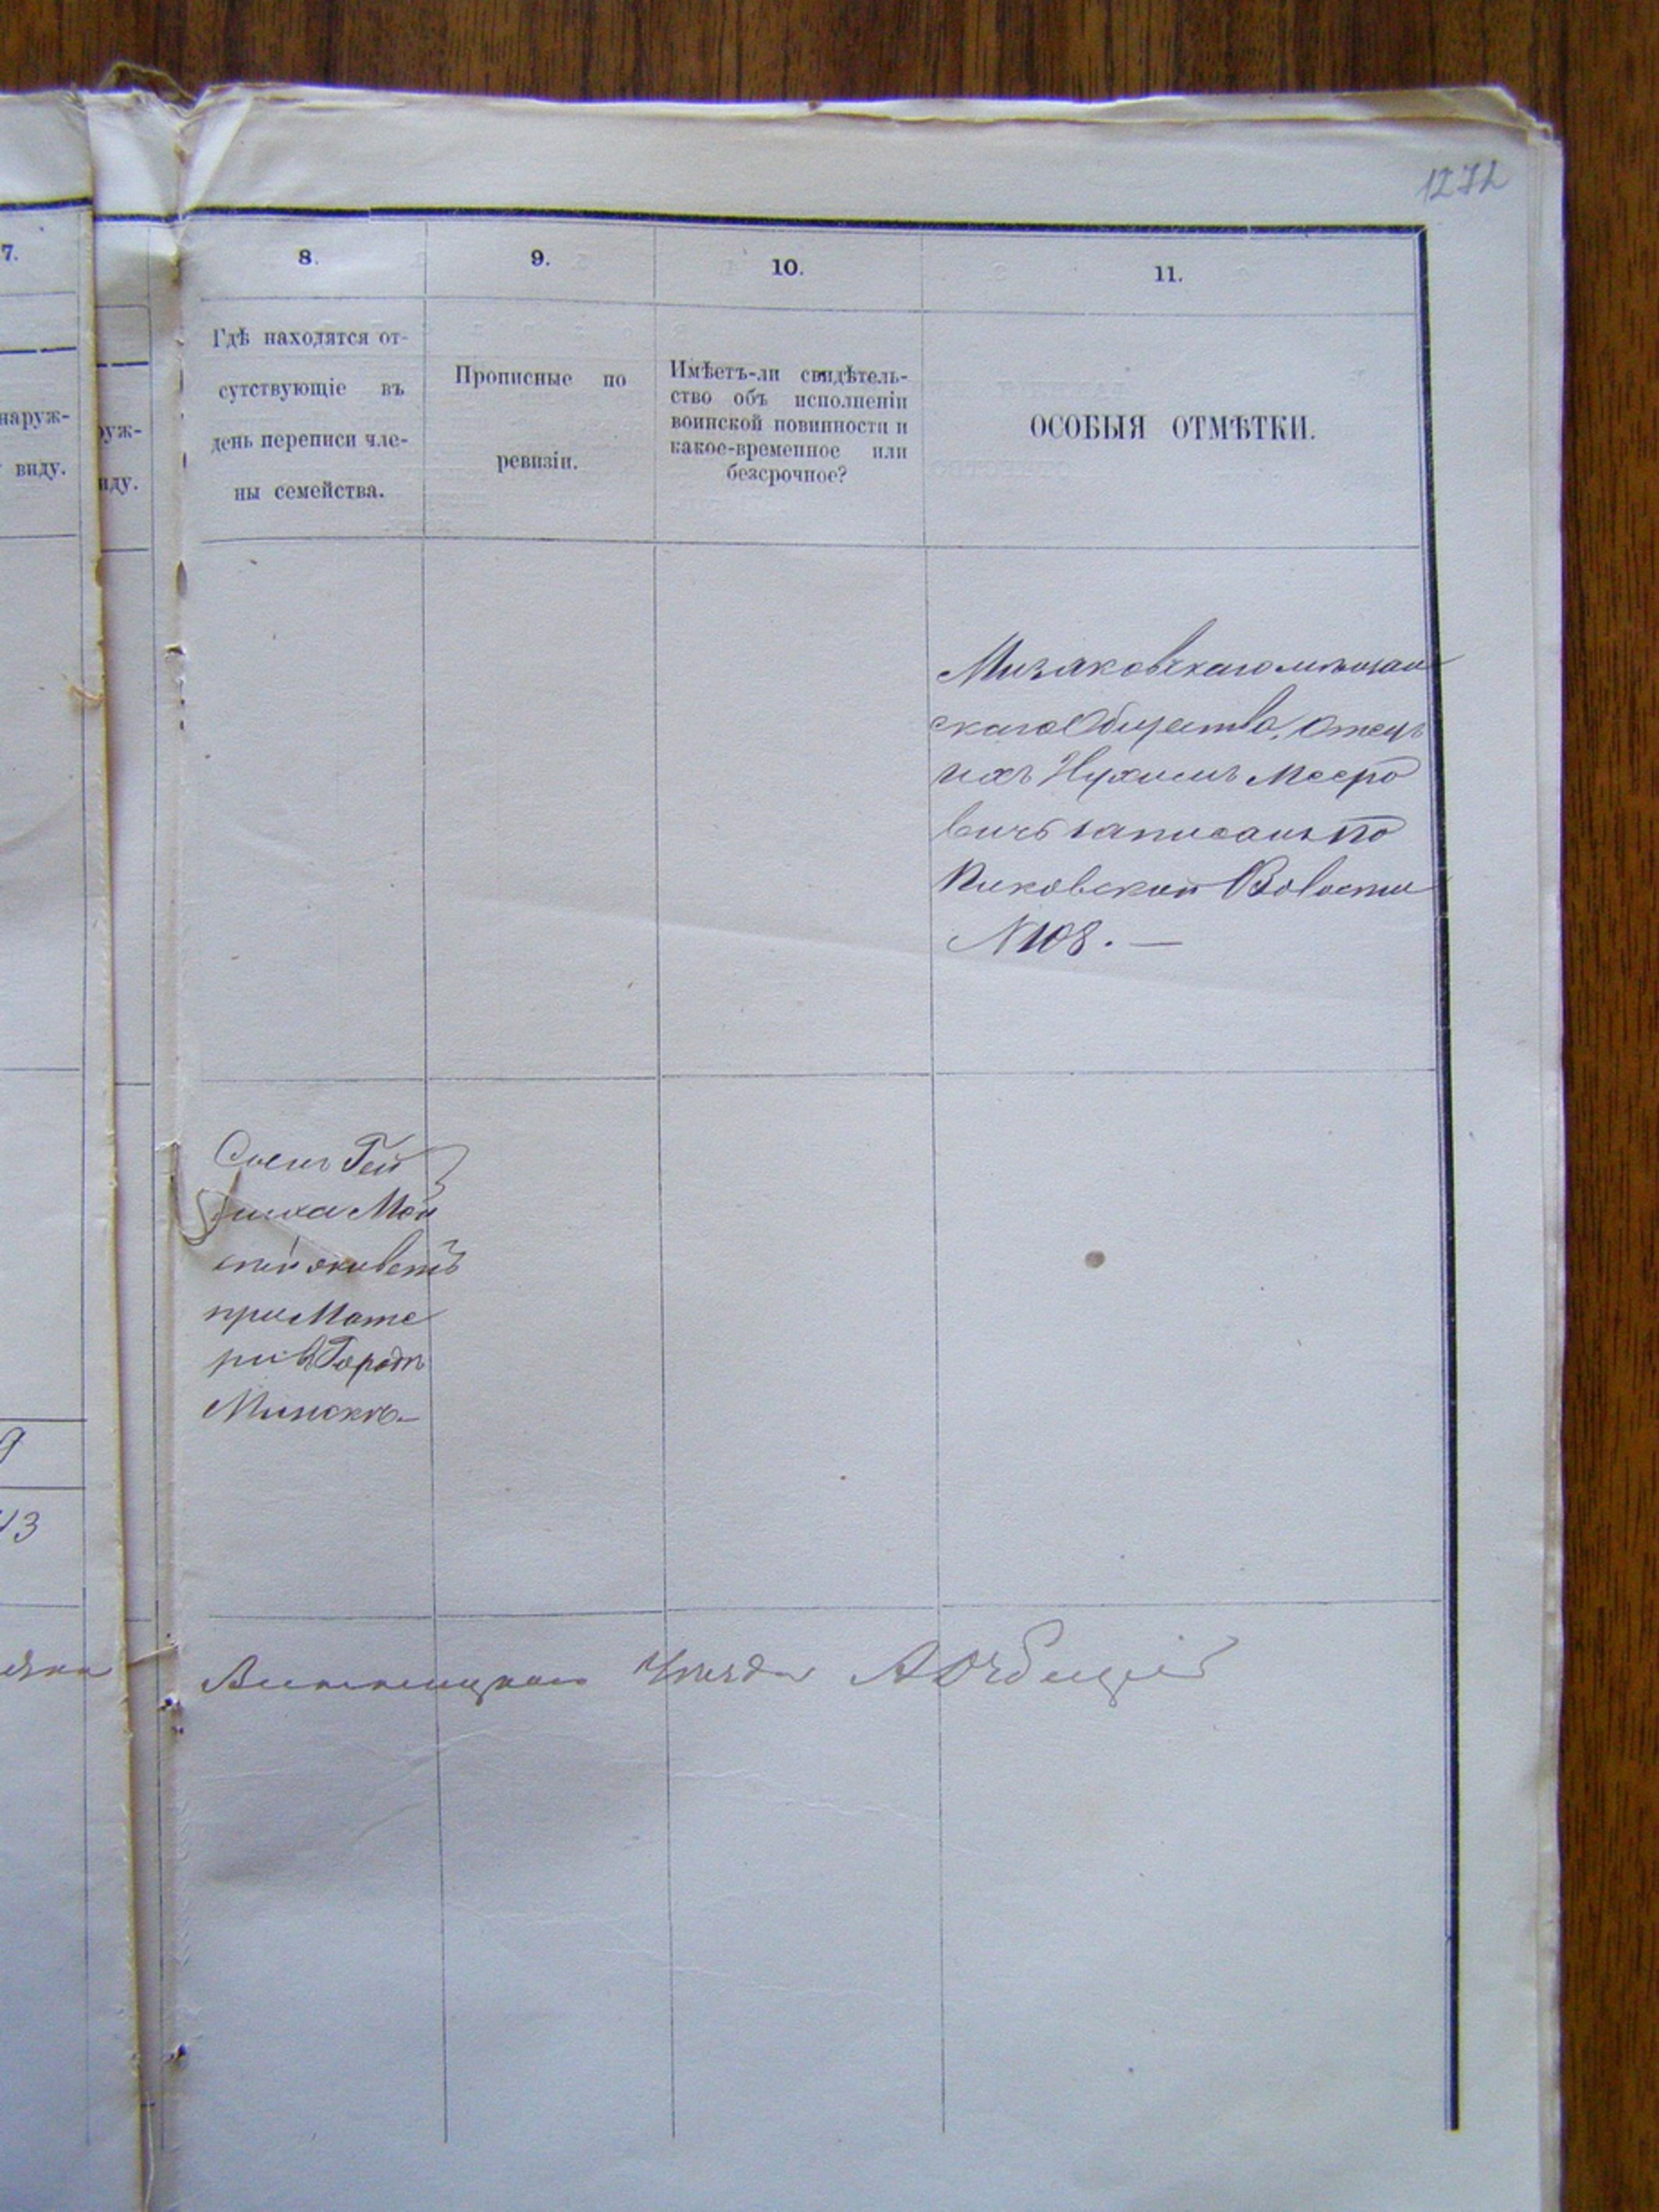 1272
7.
8.
9.
10.
11.
наруж-
виду.
руж-
иду.
Гдѣ находятся от-
сутствующіе въ
день переписи чле-
ны семейства.
Прописные по
ревизіи.
Имѣетъ-ли свидѣтель-
ство объ исполненіи
воинской повинности и
какое-временное или
безсрочное?
ОСОБЫЯ ОТМѢТКИ.
Мизяковскаго мѣщан
скаго Общества, Отецъ
ихъ Нухимъ Мееро
вичъ записанъ по
Пиковской Волости
N 108. —
живетъ
при Мате
ри въ Городѣ
Минскѣ. —
9
43
Винницкаго Уѣзда